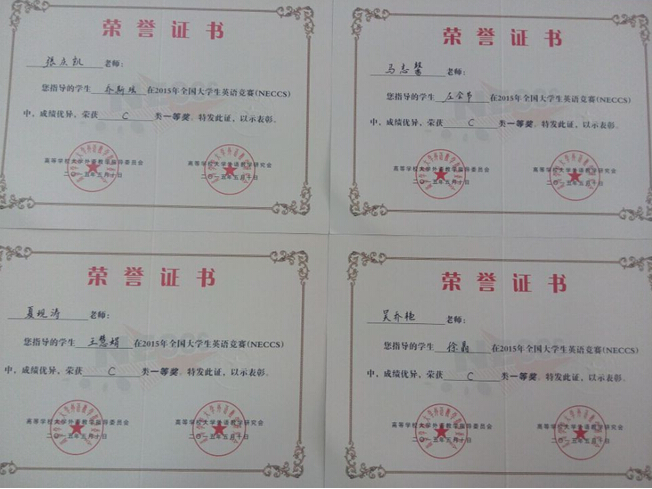 荣誉证书
张立凯 老师：
您指导的学生 乔新娥 在2015年全国大学生英语竞赛(NECCS)
中，成绩优异，荣获 C 类一等奖。特发此证，以示表彰。
高等学校大学外语教学指导委员会 高等学校大学外语教学研究会
二〇一五年五月十日 二〇一五年五月十日
荣誉证书
马志馨 老师：
您指导的学生 在2015年全国大学生英语竞赛(NECCS)
中，成绩优异，荣获 C 类一等奖。特发此证，以示表彰。
高等学校大学外语教学指导委员会 高等学校大学外语教学研究会
二〇一五年五月十日 二〇一五年五月十日
荣誉证书
夏现涛 老师：
您指导的学生 王慧娟 在2015年全国大学生英语竞赛(NECCS)
中，成绩优异，荣获 C 类一等奖。特发此证，以示表彰。
高等学校大学外语教学指导委员会 高等学校大学外语教学研究会
二〇一五年五月十日 二〇一五年五月十日
荣誉证书
吴乔艳 老师：
您指导的学生 徐磊 在2015年全国大学生英语竞赛(NECCS)
中，成绩优异，荣获 C 类一等奖。特发此证，以示表彰。
高等学校大学外语教学指导委员会 高等学校大学外语教学研究会
二〇一五年五月十日 二〇一五年五月十日